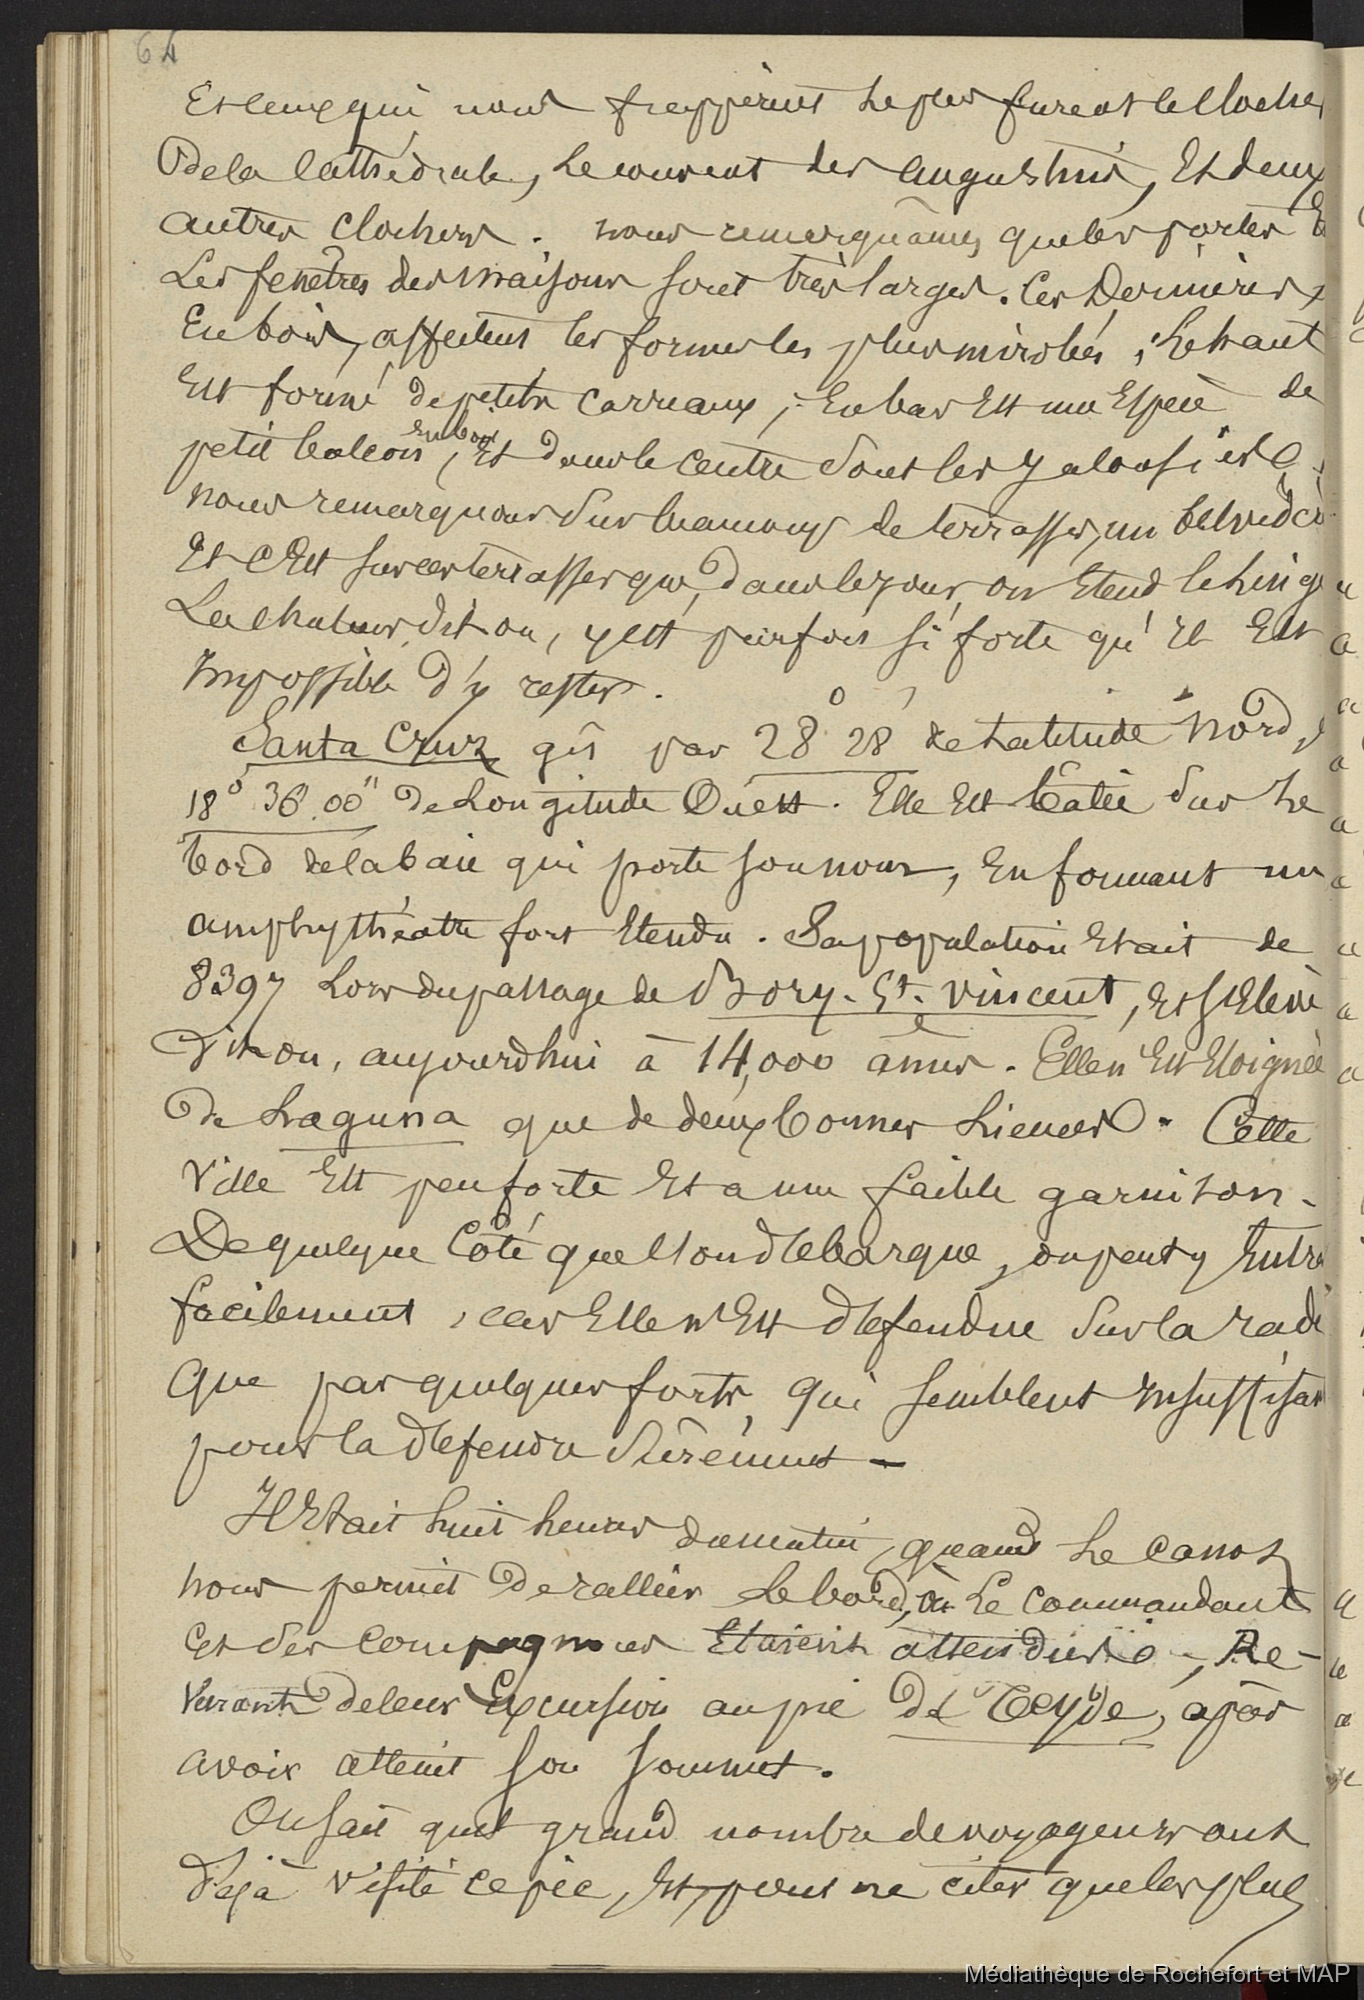 64
Et ceux qui nous frappèrent le plus furent le Clocher
De la Cathédrale, le couvent des augustins, Et deux
autres clochers. nous remarquâmes que les portes Et
Les fenêtres des maisons sont très larges. Ces Dernières,
En bois, affectent les formes les plus ; Le haut
Est formé de petits carreaux ; En bas Est une Espèce de
petit balcon En bois, Et dans le centre sont les Jalousies.
nous remarquons sur beaucoup de terrasses, un belvédère
Et c'Est sur ces terrasses que, dans le jour, on Etend le Linge
La chaleur, dit on, y est parfois si forte qu'il Est
Impossible d'y rester.
Santa Cruz gît par 28° 28' de Latitude Nord, &
18° 36' 00" de Longitude Ouest. Elle Est bâtie sur Le
bord de la baie qui porte son nom, En formant un
amphythéatre fort Etendu. Sa population Etait de
8397 Lors du passage de Bory-St-Vincent, Et s'Elève
dit on, aujourd'hui à 14,000 âmes. Elle n'Est Eloignée
De Laguna que de deux bonnes Lieues. Cette
Ville Est peu forte Et a une faible garnison.
De quelque Côté que l'on débarque, on peut y Entrer
facilement, car Elle n'Est défendue sur la rade
Que par quelques forts, qui semblent Insuffisants
pour la défendre sûrement —
Il Etait huit heures du matin, quand Le canot
nous permit De rallier Le bord, où Le Commandant
et des compagnons Etaient attendus, Re-
venant De leur Excursion au pic De Teyde, après
avoir atteint son sommet.
On sait quel grand nombre de voyageurs ont
Déjà visité ce pic, Et, pour ne citer que les plus
Médiathèque de Rochefort et MAP